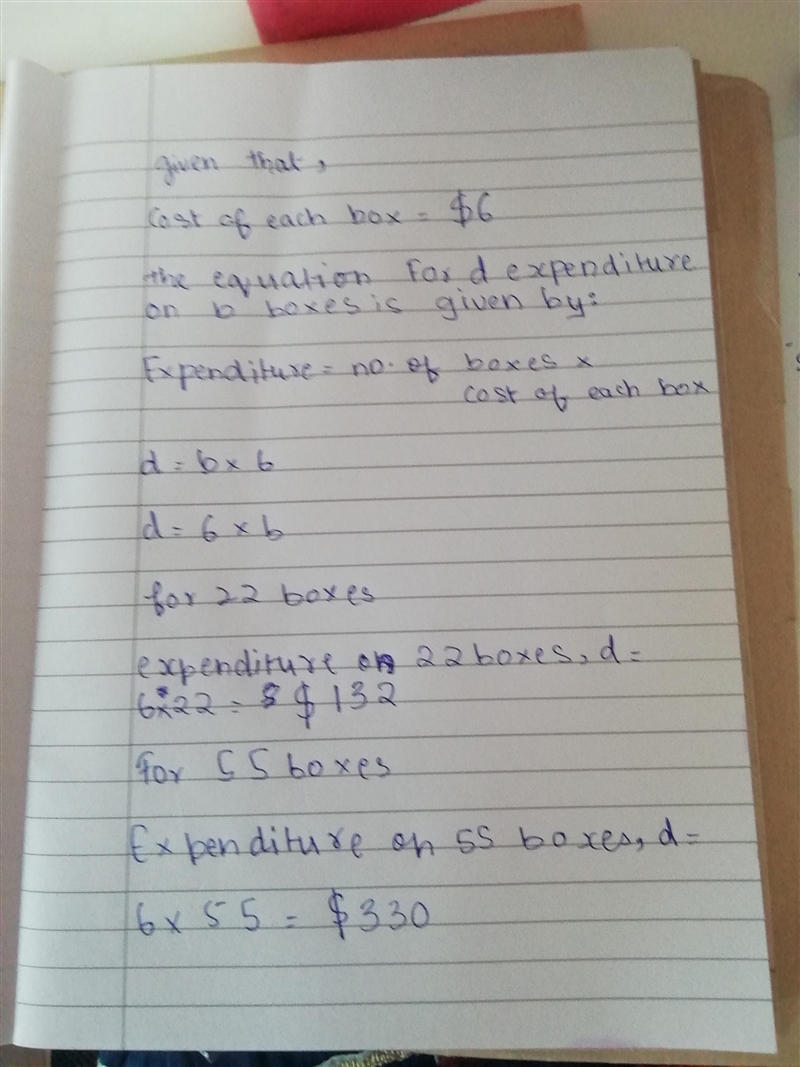 given that,
Cost of each box = $6
the equation for d expenditure
on b boxes is given by:
Expenditure = no. of boxes ×
cost of each box
d = b × 6
d = 6 × b
for 22 boxes
expenditure on 22 boxes, d =
6×22 = $ 132
For 55 boxes
Expenditure on 55 boxes, d =
6 × 55 = $330